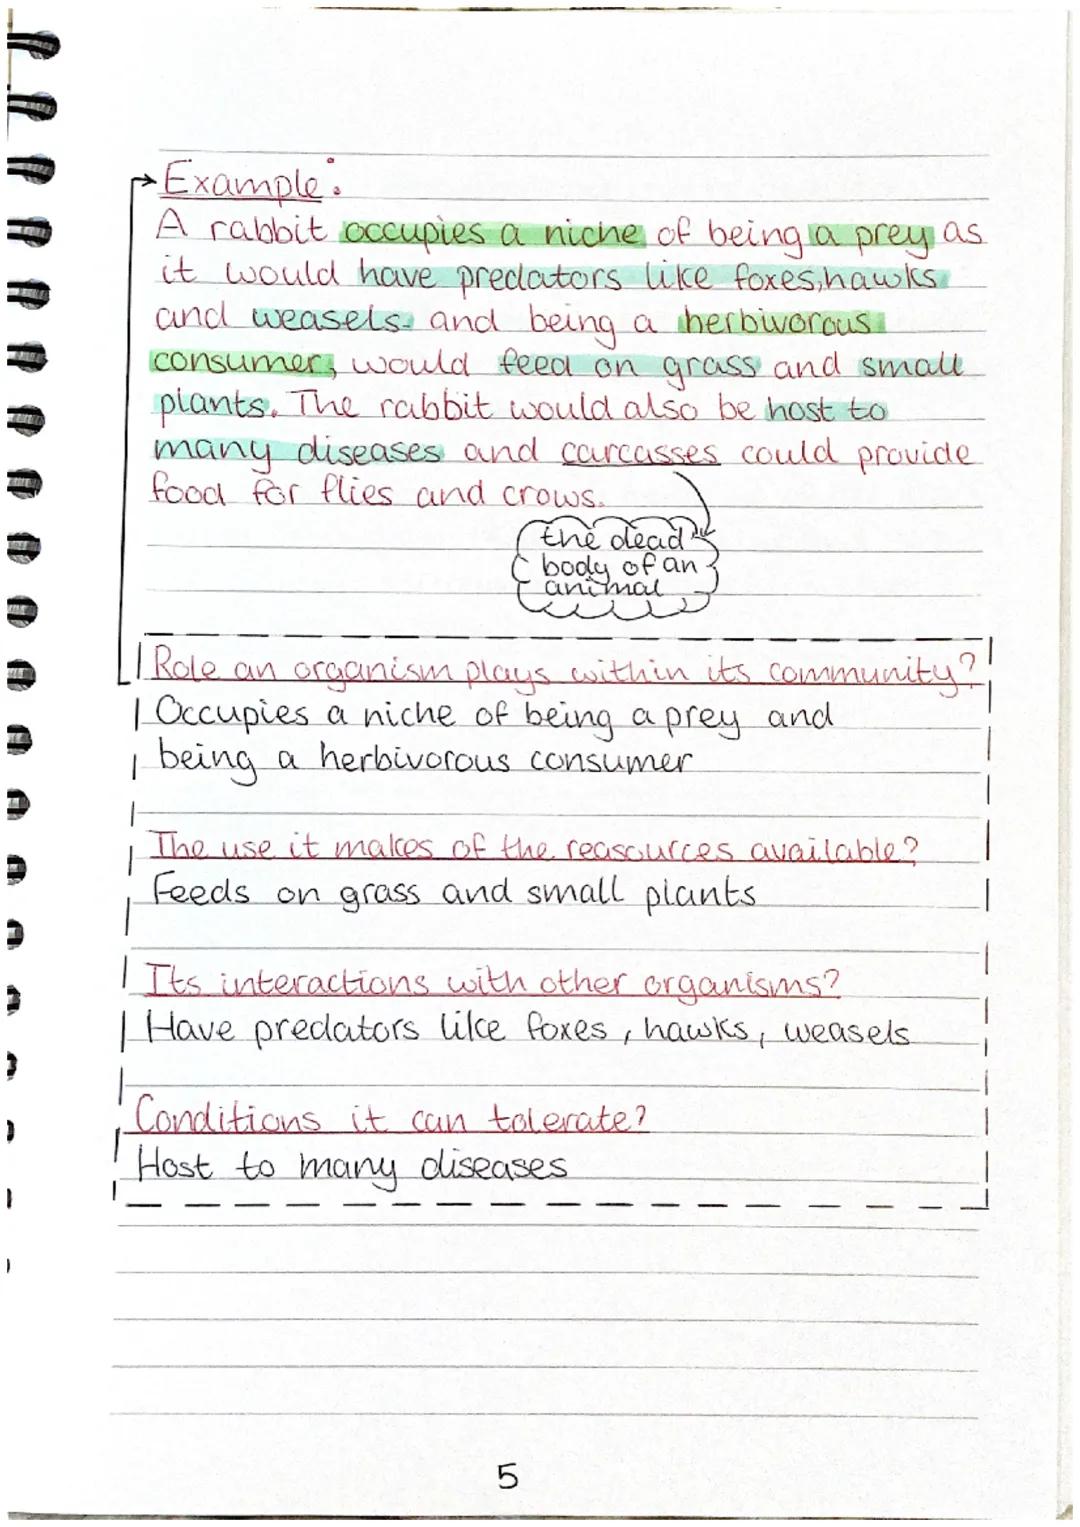 Example:
A rabbit occupies a niche of being a prey as
it would have predators like foxes, hawks
and weasels. and being a herbivorous
consumer, would feed on grass and small
plants. The rabbit would also be host to
many diseases and carcasses could provide
food for flies and crows.
the dead
body of an
animal
Role an organism plays within its community?
Occupies a niche of being a prey and
being a herbivorous consumer
The use it makes of the reasources available?
Feeds on grass and small plants
Its interactions with other organisms?
Have predators like foxes, hawks, weasels
Conditions it can tolerate?
Host to many diseases
5